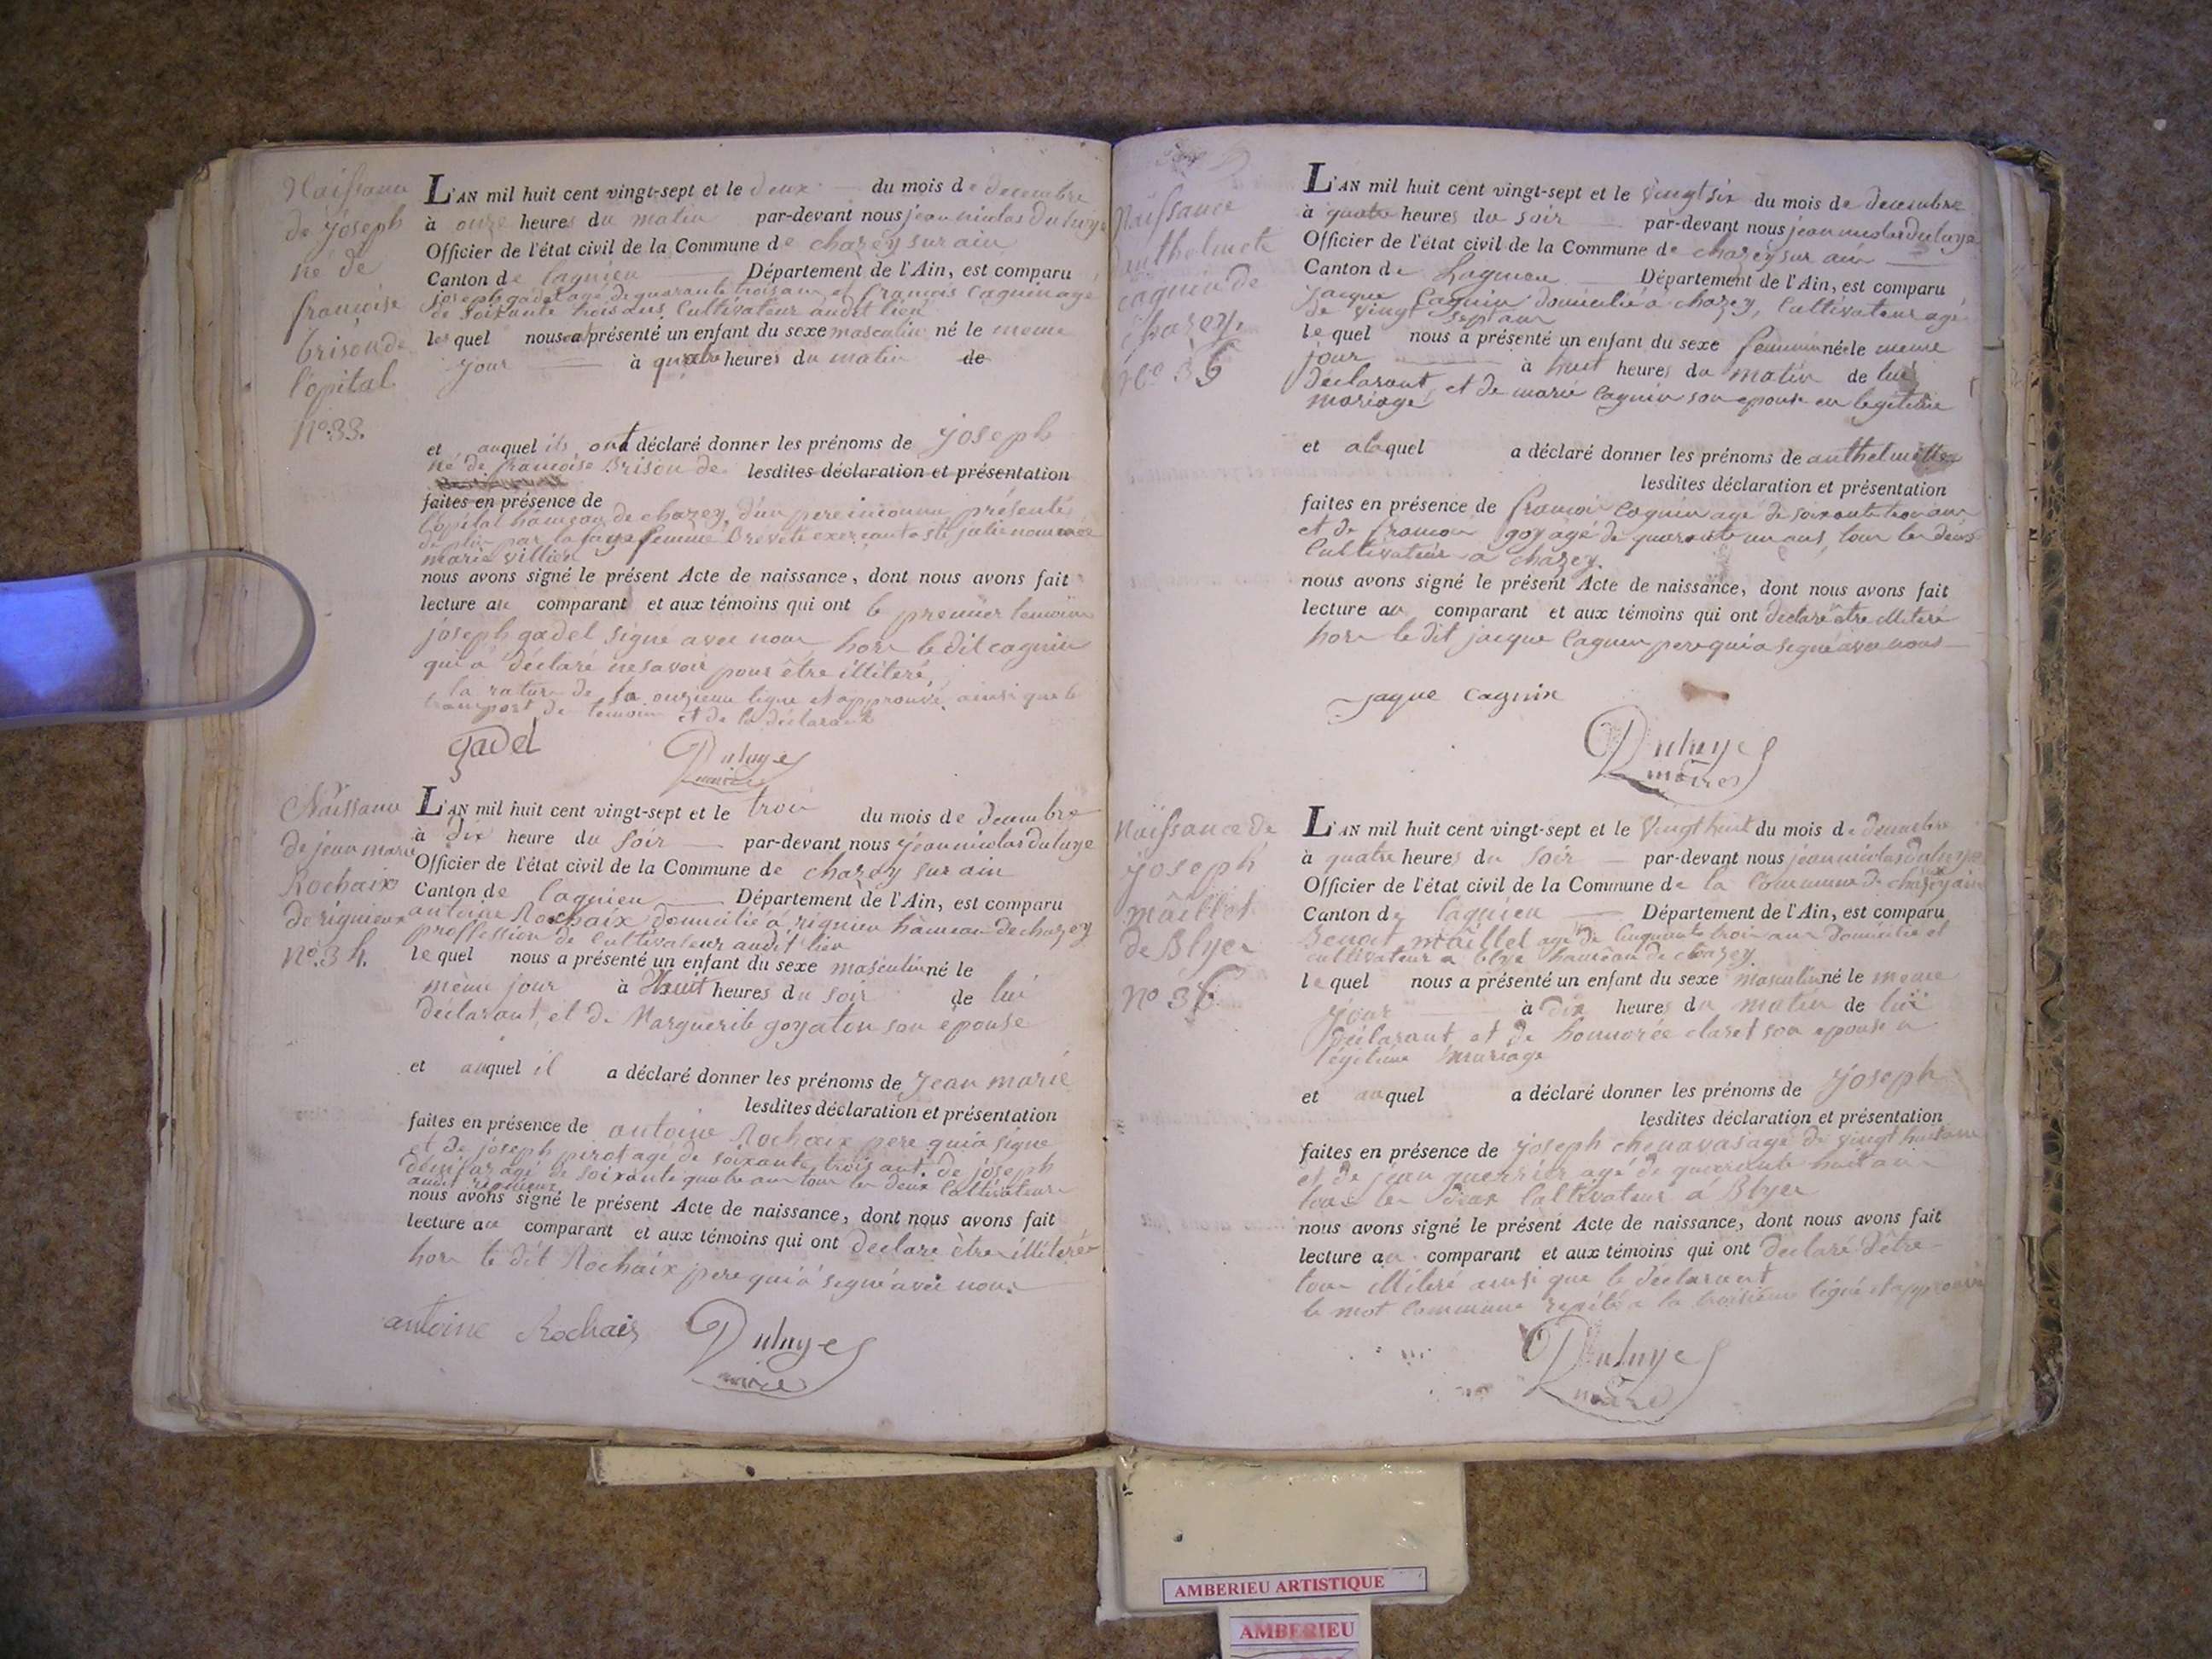 Naissance
de joseph
né de
françoise
brison de
l'opital
N.º 33.
L'AN mil huit cent vingt-sept et le deux du mois de decembre
à onze heures du matin par-devant nous jean nicolas duluye
Officier de l'état civil de la Commune de chazey sur ain
Canton de lagnieu Département de l'Ain, est comparu
joseph gadel agé de quarante trois ans et françois Cagnin agé
de soixante trois ans, Cultivateur audit lieu
lesquel nous a présenté un enfant du sexe masculin né le meme
jour à quatre heures du matin de
et auquel ils ont déclaré donner les prénoms de joseph
né de françoise Brison de lesdites déclaration et présentation
faites en présence de
l'opital hameau de chazey, d'un pere inconnu présenté
de plus par la sage femme Brévété exercant a ste julie nommée
marie villier
nous avons signé le présent Acte de naissance, dont nous avons fait
lecture au comparant et aux témoins qui ont le premier temoin
joseph gadel signé avec nous hors le dit cagnin
qui a déclaré ne savoir pour être illiteré
la rature de la onzieme ligne est approuvé, ainsi que le
transport de temoin et de la déclarant
gadel Duluye
maire
Naissance
de jean marie
Rochaix
de rignieux
N.º 34.
L'AN mil huit cent vingt-sept et le trois du mois de decembre
à dix heure du soir par-devant nous jean nicolas duluye
Officier de l'état civil de la Commune de chazey sur ain
Canton de lagnieu Département de l'Ain, est comparu
antoine Rochaix domicilié à rignieu hameau de chazey
proffession de Cultivateur audit lieu
lequel nous a présenté un enfant du sexe masculin né le
même jour à huit heures du soir de lui
déclarant, et de Marguerite goyaton son épouse
et auquel il a déclaré donner les prénoms de jean marie
lesdites déclaration et présentation
faites en présence de antoine Rochaix pere qui a signé
et de joseph pirot agé de soixante trois ans. de joseph
agé de soixante quatre ans tous les deux Cultivateur
audit rignieux
nous avons signé le présent Acte de naissance, dont nous avons fait
lecture au comparant et aux témoins qui ont declare être illiteré
hors le dit Rochaix pere qui a signé avec nous
antoine Rochaix Duluye
maire
Naissance
anthelmette
cagnin de
chazey,
N.º 35
L'AN mil huit cent vingt-sept et le vingt six du mois de decembre
à quatre heures du soir par-devant nous jean nicolas duluye
Officier de l'état civil de la Commune de chazey sur ain
Canton de Lagnieu Département de l'Ain, est comparu
jacque Cagnin domicilié a chazey, Cultivateur agé
de vingt sept ans
lequel nous a présenté un enfant du sexe feminin née le meme
jour à huit heures du matin de lui
déclarant, et de marie Cagnin son epouse en legitime
mariage
et alaquel a déclaré donner les prénoms de anthelmette
lesdites déclaration et présentation
faites en présence de françois Cagnin agé de soixante trois ans
et de françois goy agé de quarante un ans, tous les deux
Cultivateur a chazey.
nous avons signé le présent Acte de naissance, dont nous avons fait
lecture au comparant et aux témoins qui ont declaré être illiteré
hors le dit jacque Cagnin pere qui a signé avec nous
jaque cagnin
Duluye
maire
Naissance de
joseph
maillet
de Blyes
N.º 36
L'AN mil huit cent vingt-sept et le vingt huit du mois de decembre
à quatre heures du soir par-devant nous jean nicolas duluye
Officier de l'état civil de la Commune de la Commune de chazey ain
Canton de lagnieu Département de l'Ain, est comparu
Benoit maillet agé de Cinquante trois ans domicilié et
cultivateur a blye hameau de chazey
lequel nous a présenté un enfant du sexe masculin né le meme
jour à dix heures du matin de lui
déclarant et de honnorée claret son epouse en
légitime mariage
et auquel a déclaré donner les prénoms de joseph
lesdites déclaration et présentation
faites en présence de joseph chenavas agé de vingt huit ans
et de jean guerrier agé de quarante huit ans
tous les deux Cultivateur à Blyes
nous avons signé le présent Acte de naissance, dont nous avons fait
lecture au comparant et aux témoins qui ont declaré d'être
tous illiteré ainsi que le déclarant
le mot Commune repété a la troisieme ligne est approuvé
Duluye
maire
AMBERIEU ARTISTIQUE
AMBERIEU